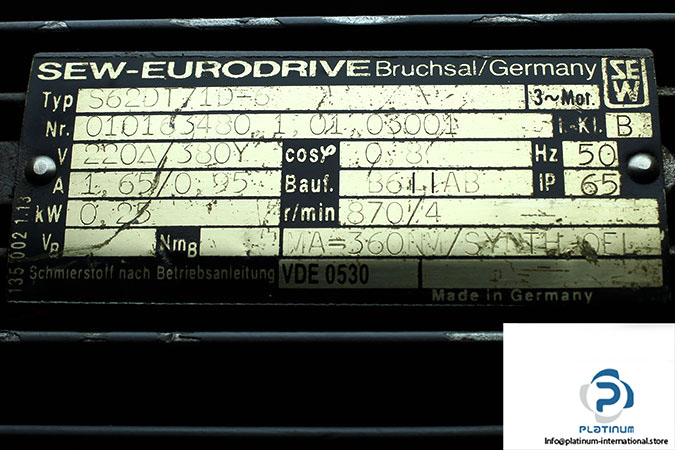 SEW-EURODRIVE Bruchsal/Germany SEW
Typ S62DT71D-6 3~Mot.
Nr. 010163480.1.01.03001 I.-Kl. B
V 220Δ/380Y cosφ 0,8 Hz 50
A 1,65/0,95 Bauf. B6 IP 65
kW 0,25 r/min 870/4
VB NmB MA=360NM/SYNTH.OEL
Schmierstoff nach Betriebsanleitung VDE 0530
Made in Germany
135 002 1.13
P
PLATINUM
Info@platinum-international.store